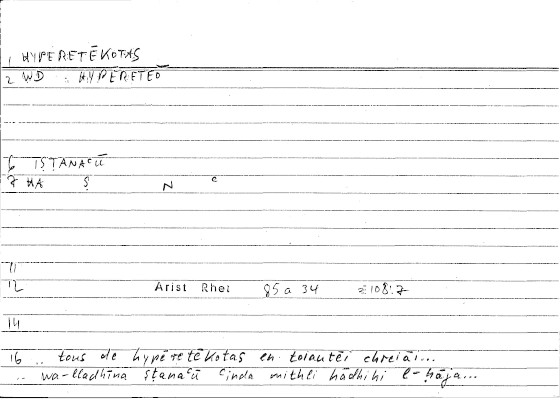 1 HYPERETĒKOTAS
2 WD : HYPĒRETEŌ
6 IṢṬANAᶜŪ
7 HA Ṣ N ᶜ
11
12 Arist Rhet 85 a 34 = 108:7
14
16 .. tous de hypēretēkotas en toiautēi chreiāi...
.. wa-lladhīna ṣṭanaᶜū ᶜinda mithli hādhihi l-ḥāja...